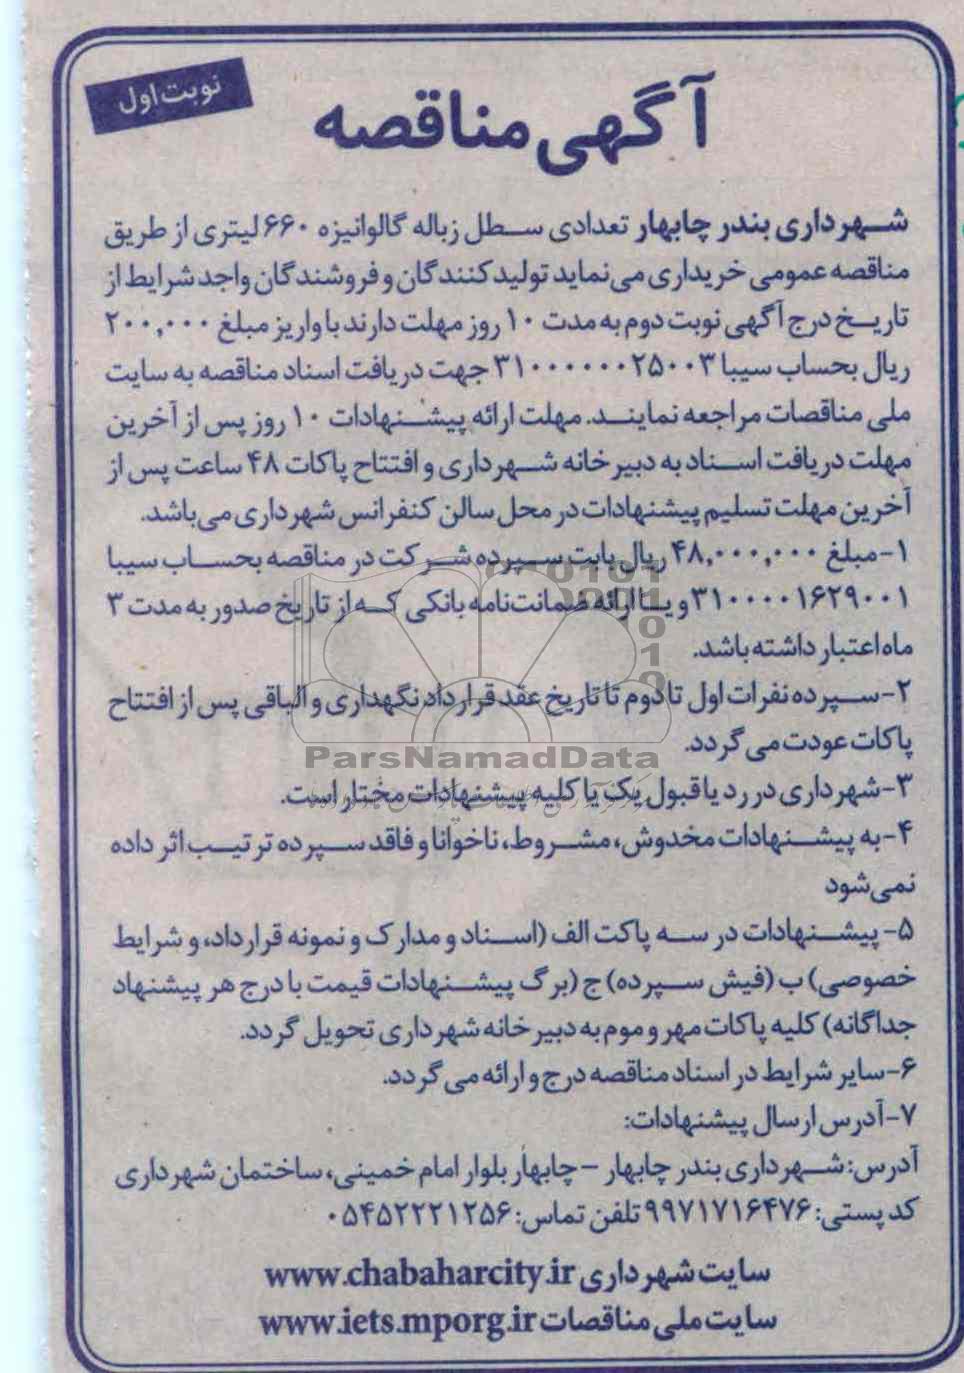 نوبت اول
آگهی مناقصه
شهرداری بندر چابهار تعدادی سطل زباله گالوانیزه ۶۶۰ لیتری از طریق
مناقصه عمومی خریداری می‌نماید تولیدکنندگان و فروشندگان واجد شرایط از
تاریخ درج آگهی نوبت دوم به مدت ۱۰ روز مهلت دارند با واریز مبلغ ۲۰۰,۰۰۰
ریال بحساب سیبا ۳۱۰۰۰۰۰۰۲۵۰۰۳ جهت دریافت اسناد مناقصه به سایت
ملی مناقصات مراجعه نمایند. مهلت ارائه پیشنهادات ۱۰ روز پس از آخرین
مهلت دریافت اسناد به دبیرخانه شهرداری و افتتاح پاکات ۴۸ ساعت پس از
آخرین مهلت تسلیم پیشنهادات در محل سالن کنفرانس شهرداری می‌باشد.
۱-مبلغ ۴۸,۰۰۰,۰۰۰ ریال بابت سپرده شرکت در مناقصه بحساب سیبا
۳۱۰۰۰۰۱۶۲۹۰۰۱ و یا ارائه ضمانت‌نامه بانکی که از تاریخ صدور به مدت ۳
ماه اعتبار داشته باشد.
۲-سپرده نفرات اول تا دوم تا تاریخ عقد قرارداد نگهداری و الباقی پس از افتتاح
پاکات عودت می گردد.
ParsNamadData
۳-شهرداری در رد یا قبول یک یا کلیه پیشنهادات مختار است.
۴-به پیشنهادات مخدوش، مشروط، ناخوانا و فاقد سپرده ترتیب اثر داده
نمی‌شود
۵- پیشنهادات در سه پاکت الف (اسناد و مدارک و نمونه قرارداد، و شرایط
خصوصی) ب (فیش سپرده) ج (برگ پیشنهادات قیمت با درج هر پیشنهاد
جداگانه) کلیه پاکات مهر و موم به دبیرخانه شهرداری تحویل گردد.
۶-سایر شرایط در اسناد مناقصه درج و ارائه می گردد.
۷-آدرس ارسال پیشنهادات:
آدرس: شهرداری بندر چابهار – چابهار بلوار امام خمینی، ساختمان شهرداری
کد پستی: ۹۹۷۱۷۱۶۴۷۶ تلفن تماس: ۰۵۴۵۲۲۲۱۲۵۶
سایت شهرداری www.chabaharcity.ir
سایت ملی مناقصات www.iets.mporg.ir